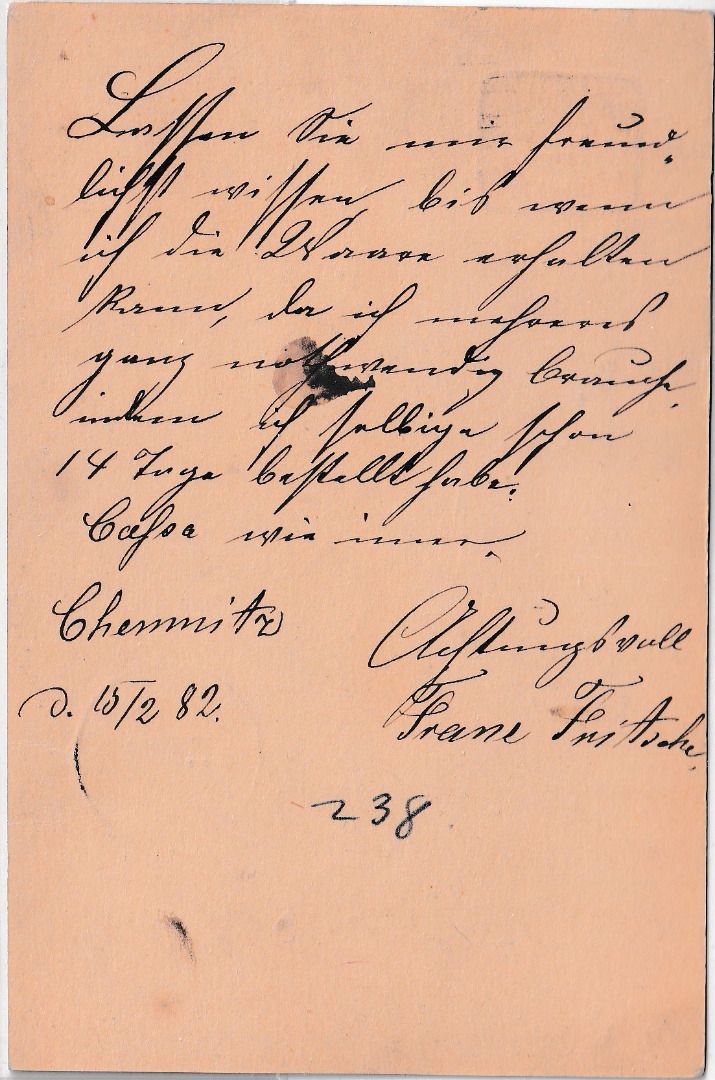 Lassen Sie mir freund-
lichst wissen, bis wenn
ich die Waare erhalten
kann, da ich mehreres
ganz nothwendig brauche,
indem ich selbige schon
14 Tage bestellt habe.
Cassa wie imer.
Chemnitz
d. 15/2 82.
Achtungsvoll
Franz Fritzsche.
238